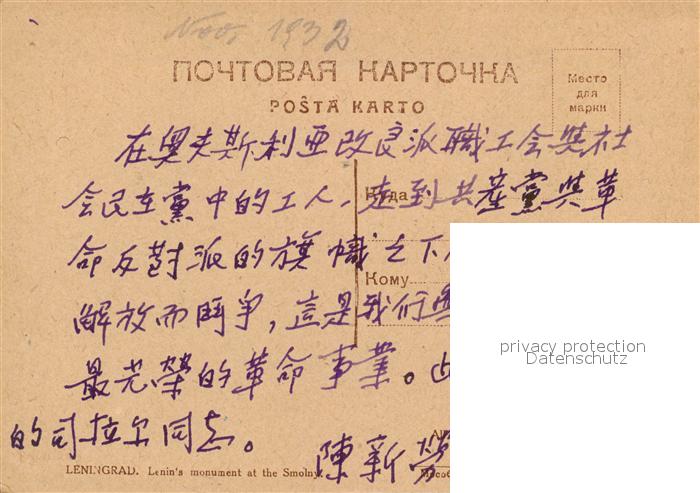 Nov. 1932
ПОЧТОВАЯ КАРТОЧКА
POŜTA KARTO
Место
для
марки
在奥夫斯利亜改良派職工会與社
会民主黨中的工人,走到共產黨與革
Куда
命反對派的旗幟之下
Кому
解放而鬥爭,這是我們
privacy protection
Datenschutz
最光榮的革命事業。
的司拉尔同志。
陳新
LENINGRAD. Lenin's monument at the Smolny.